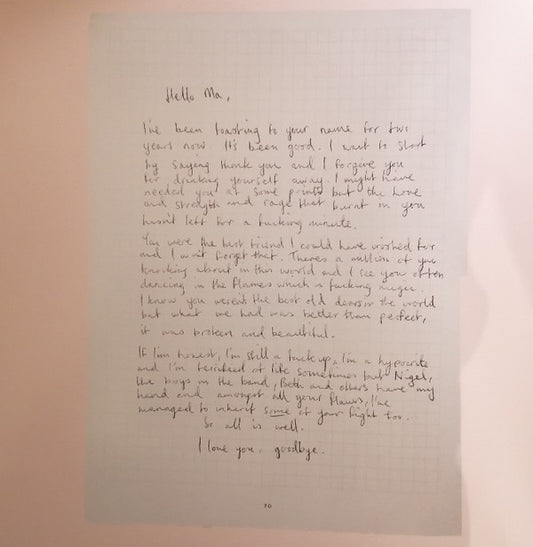 Hello Ma,
I've been toasting to your name for two
years now. It's been good. I want to start
by saying thank you and I forgive you
for drinking yourself away. I might have
needed you at some points but the love
and strength and rage that burnt in you
hasn't left for a fucking minute.
You were the best friend I could have wished for
and I won't forget that. Theres a million of you
knocking about in this world and I see you often
dancing in the flames which is fucking
I know you weren't the best old dear in the world
but what we had was better than perfect,
it was broken and beautiful.
If I'm honest, I'm still a fuck up, I'm a hypocrite
and I'm terrified of life sometimes but Nigel,
the boys in the band, Beth and others have my
hand and amongst all your flaws, I've
managed to inherit some of your fight too.
So all is well.
I love you. goodbye.
70